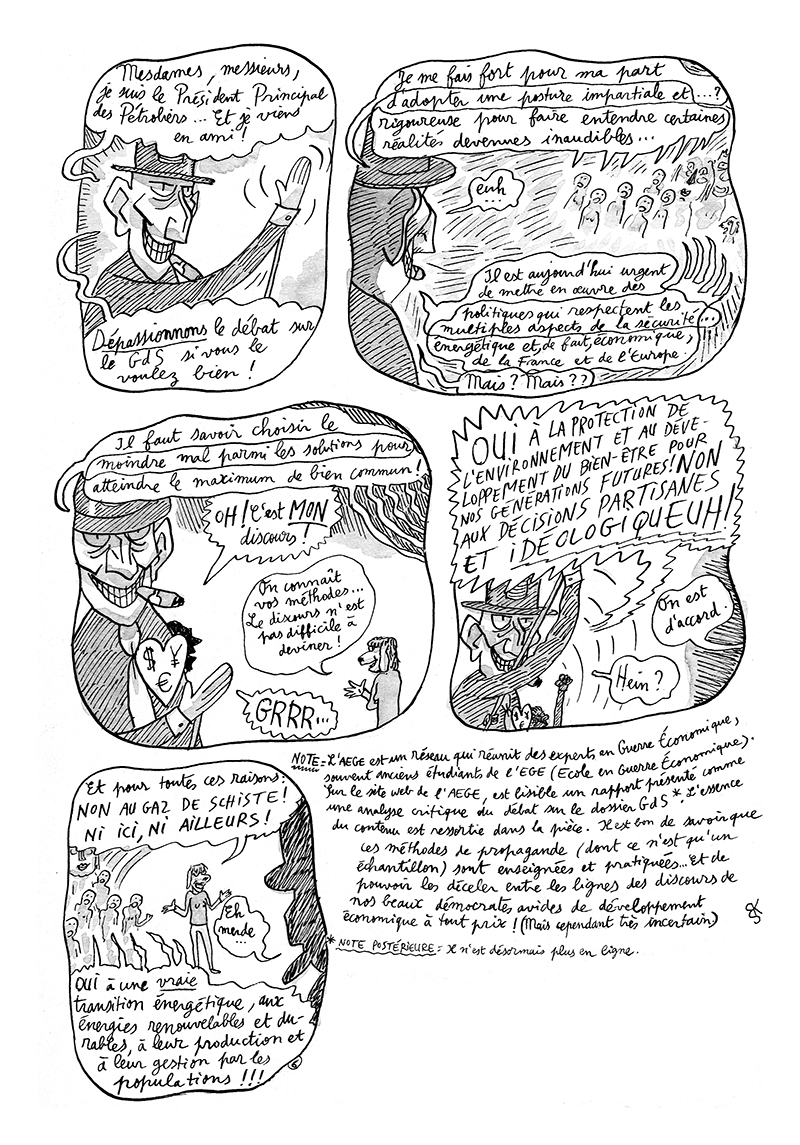 Mesdames, messieurs,
je suis le Président Principal
des Pétroliers... Et je viens
en ami !
Dépassionnons le débat sur
le GdS si vous le
voulez bien !
Je me fais fort pour ma part
d'adopter une posture impartiale et ...?
rigoureuse pour faire entendre certaines
réalités devenues inaudibles...
euh
...
Il est aujourd'hui urgent
de mettre en œuvre des
politiques qui respectent les
multiples aspects de la sécurité ...
énergétique et, de fait, économique,
de la France et de l'Europe.
Mais ? Mais ??
Il faut savoir choisir le
moindre mal parmi les solutions pour
atteindre le maximum de bien commun !
OH ! C'est MON
discours !
On connaît
vos méthodes...
Le discours n'est
pas difficile à
deviner !
$ ¥
€
GRRR...
OUI À LA PROTECTION DE
L'ENVIRONNEMENT ET AU DÉVE-
LOPPEMENT DU BIEN-ÊTRE POUR
NOS GÉNÉRATIONS FUTURES ! NON
AUX DÉCISIONS PARTISANES
ET iDÉOLOGIQUEUH !
On est
d'accord.
Hein ?
Et pour toutes ces raisons :
NON AU GAZ DE SCHISTE !
NI ICI, NI AILLEURS !
Eh
merde...
OUI à une vraie
transition énergétique, aux
énergies renouvelables et du-
rables, à leur production et
à leur gestion par les
populations !!!
6
NOTE = L'AEGE est un réseau qui réunit des experts en Guerre Économique,
souvent anciens étudiants de l'EGE (Ecole en Guerre Économique).
Sur le site web de l'AEGE, est lisible un rapport présenté comme
une analyse critique du débat sur le dossier GdS*. L'essence
du contenu est ressortie dans la pièce. Il est bon de savoir que
ces méthodes de propagande (dont ce n'est qu'un
échantillon) sont enseignées et pratiquées... Et de
pouvoir les déceler entre les lignes des discours de
nos beaux démocrates avides de développement
économique à tout prix ! (Mais cependant très incertain)
* NOTE POSTÉRIEURE = Il n'est désormais plus en ligne.